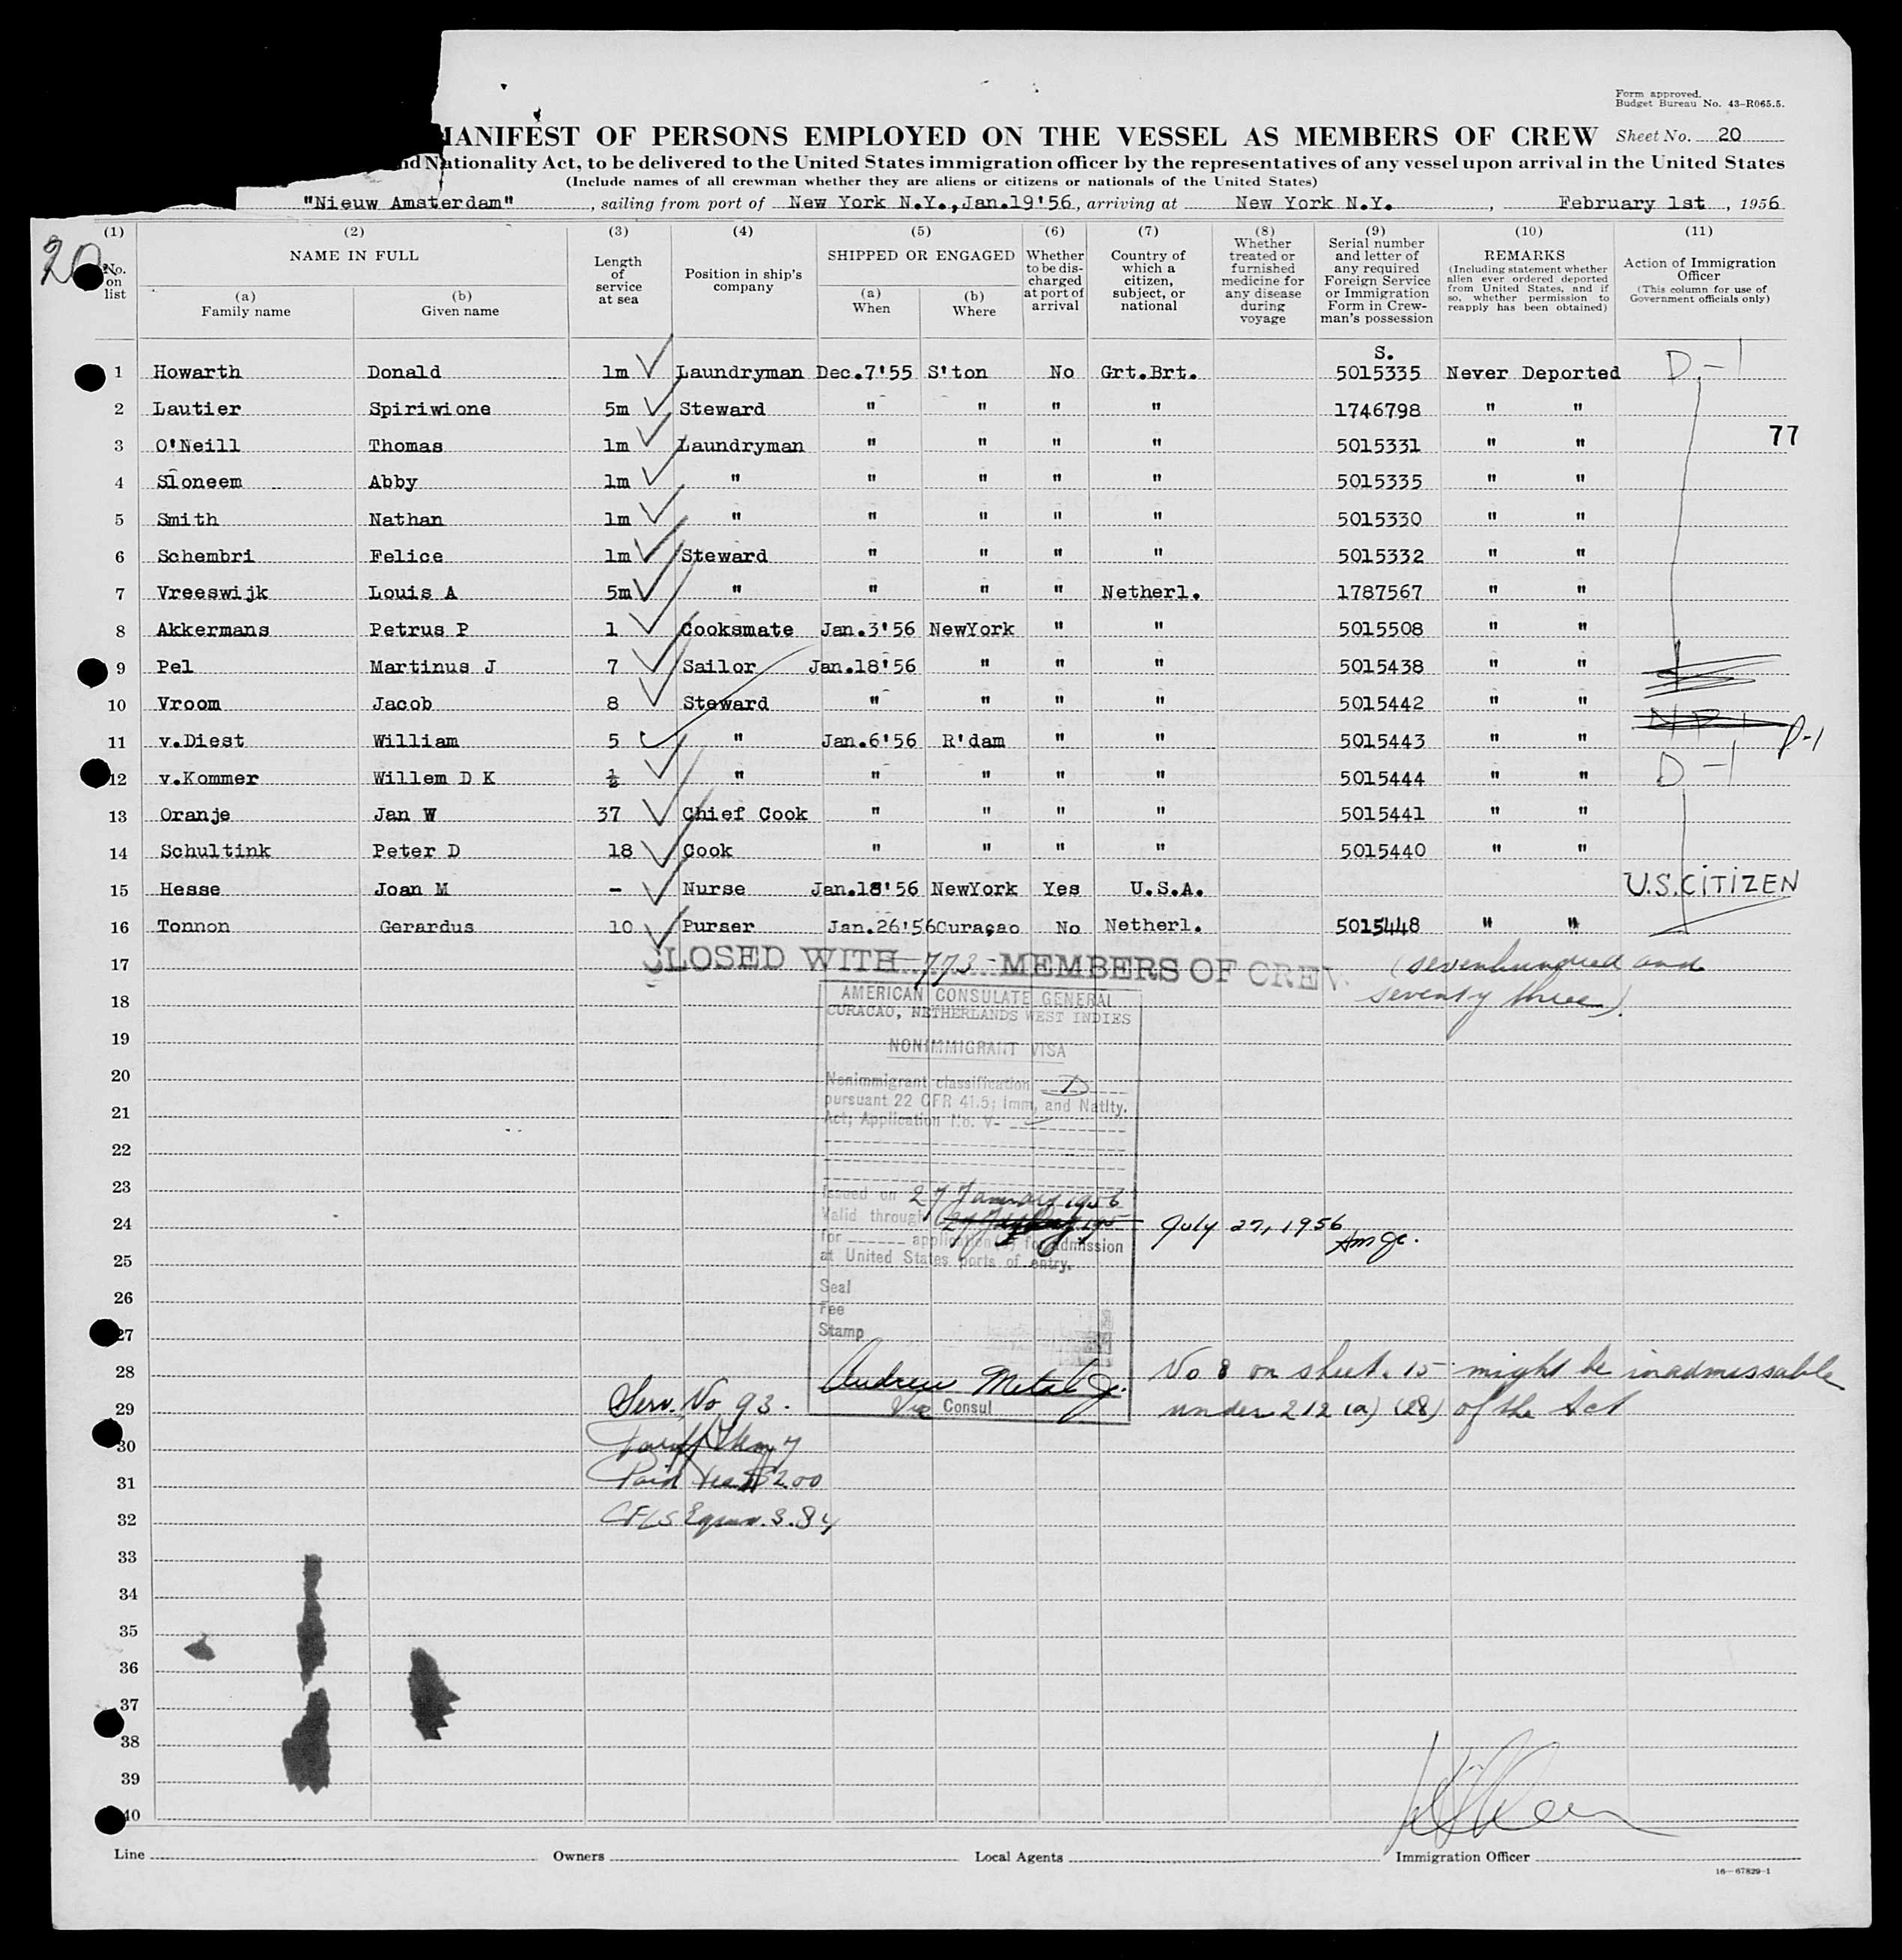 Form approved.
Budget Bureau No. 43-R065.5.
MANIFEST OF PERSONS EMPLOYED ON THE VESSEL AS MEMBERS OF CREW Sheet No. 20
and Nationality Act, to be delivered to the United States immigration officer by the representatives of any vessel upon arrival in the United States
(Include names of all crewman whether they are aliens or citizens or nationals of the United States)
"Nieuw Amsterdam", sailing from port of New York N.Y.,Jan.19'56, arriving at New York N.Y., February 1st, 1956
20
(1) No. on list
(2) NAME IN FULL
(a) Family name
(b) Given name
(3) Length of service at sea
(4) Position in ship's company
(5) SHIPPED OR ENGAGED
(a) When
(b) Where
(6) Whether to be discharged at port of arrival
(7) Country of which a citizen, subject, or national
(8) Whether treated or furnished medicine for any disease during voyage
(9) Serial number and letter of any required Foreign Service or Immigration Form in Crewman's possession
(10) REMARKS (Including statement whether alien ever ordered deported from United States, and if so, whether permission to reapply has been obtained)
(11) Action of Immigration Officer (This column for use of Government officials only)
S.
1 Howarth Donald 1m Laundryman Dec.7'55 S'ton No Grt.Brt. 5015335 Never Deported D-1
2 Lautier Spiriwione 5m Steward " " " " 1746798 " "
3 O'Neill Thomas 1m Laundryman " " " " 5015331 " " 77
4 Sloneem Abby 1m " " " " " 5015335 " "
5 Smith Nathan 1m " " " " " 5015330 " "
6 Schembri Felice 1m Steward " " " " 5015332 " "
7 Vreeswijk Louis A 5m " " " " Netherl. 1787567 " "
8 Akkermans Petrus P 1 Cooksmate Jan.3'56 NewYork " " 5015508 " "
9 Pel Martinus J 7 Sailor Jan.18'56 " " " 5015438 " "
10 Vroom Jacob 8 Steward " " " " 5015442 " "
11 v.Diest William 5 " Jan.6'56 R'dam " " 5015443 " " D-1
12 v.Kommer Willem D K ½ " " " " " 5015444 " " D-1
13 Oranje Jan W 37 Chief Cook " " " " 5015441 " "
14 Schultink Peter D 18 Cook " " " " 5015440 " "
15 Hesse Joan M - Nurse Jan.18'56 NewYork Yes U.S.A. U.S.CITIZEN
16 Tonnon Gerardus 10 Purser Jan.26'56 Curaçao No Netherl. 5015448 " "
17 CLOSED WITH 773 MEMBERS OF CREW (sevenhundred and
18 seventy three)
AMERICAN CONSULATE GENERAL
CURACAO, NETHERLANDS WEST INDIES
19
NONIMMIGRANT VISA
20
Nonimmigrant classification D
pursuant 22 CFR 41.5; Imm. and Natlty.
21
Act; Application No. V-
22
23
Issued on 27 January 1956
24
Valid through July 27, 1956
for application(s) for admission
25
at United States ports of entry.
Seal
26
Fee
27
Stamp
28
No 8 on sheet 15 might be inadmissable
Andrew
Vice Consul
29
under 212 (a) (28) of the Act
Serv. No 93.
30
31
Paid $2.00
32
3.84
33
34
35
36
37
38
39
40
Line
Owners
Local Agents
Immigration Officer
16-67829-1